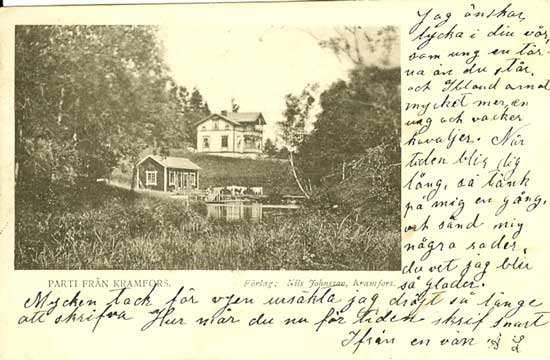 Jag önskar,
lycka i din vår,
som ung en tär-
na än du står,
och Ibland annat
mycket mer, en
ung och vacker
kavaljer. När
tiden blir dig
lång, så tänk
på mig en gång,
och sänd mig
några rader,
du vet jag blir
så glader.
PARTI FRÅN KRAMFORS.
Förlag: Nils Johnsson, Kramfors.
Mycken tack för vyen ursäkta jag dröjt så länge
att skrifva Hur mår du nu för tiden skrif snart
Ifrån en vän